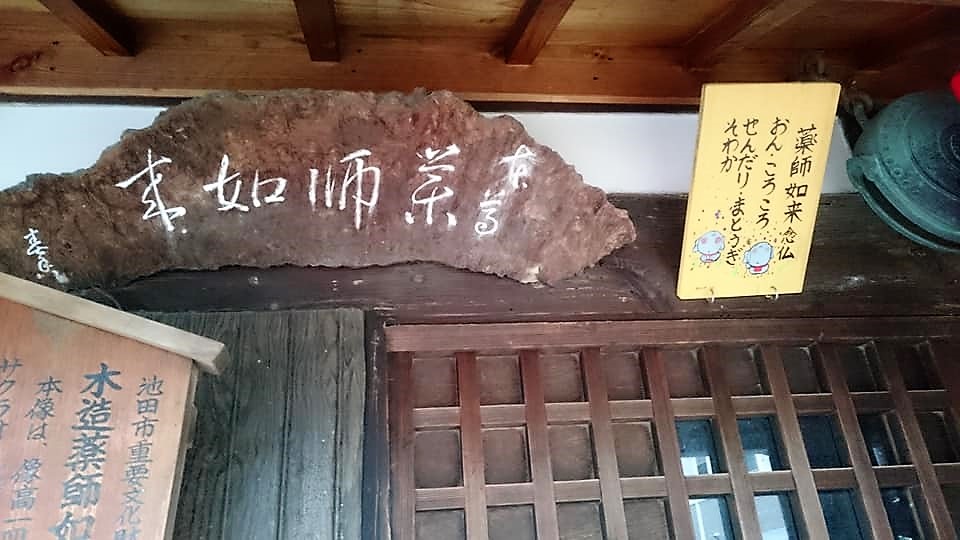 薬師如来
薬師如来念仏
おん・ころころ
せんだり まとうぎ
そわか
池田市重要文化財
木造薬師如
本像は、像高一
サクラ